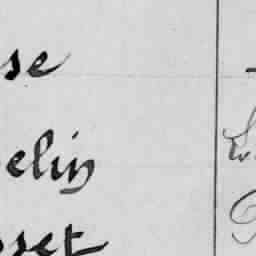 se
elin
sset